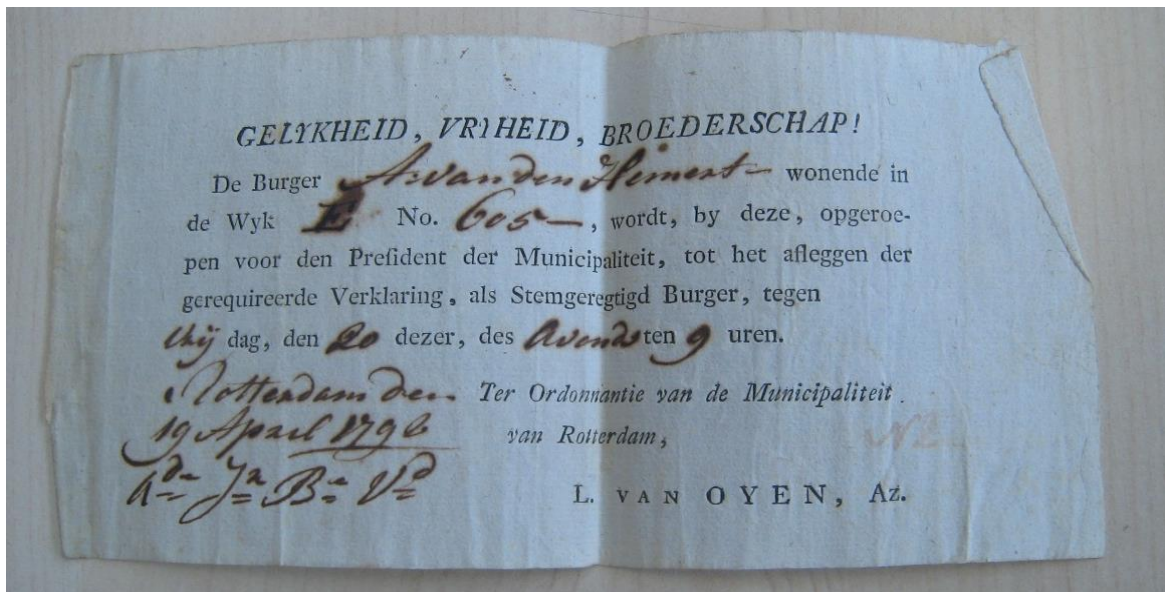 GELYKHEID, VRYHEID, BROEDERSCHAP!
De Burger A: van den Hemert wonende in
de Wyk E No. 605 —, wordt, by deze, opgeroe-
pen voor den Presideent der Municipaliteit, tot het afleggen der
gerequireerde Verklaring, als Stemgeregtigd Burger, tegen
Vrij dag, den 20 dezer, des Avonds ten 9 uren.
Rotterdam den
19 April 1796
Ter Ordonnantie van de Municipaliteit
van Rotterdam,
L. VAN OYEN, Az.